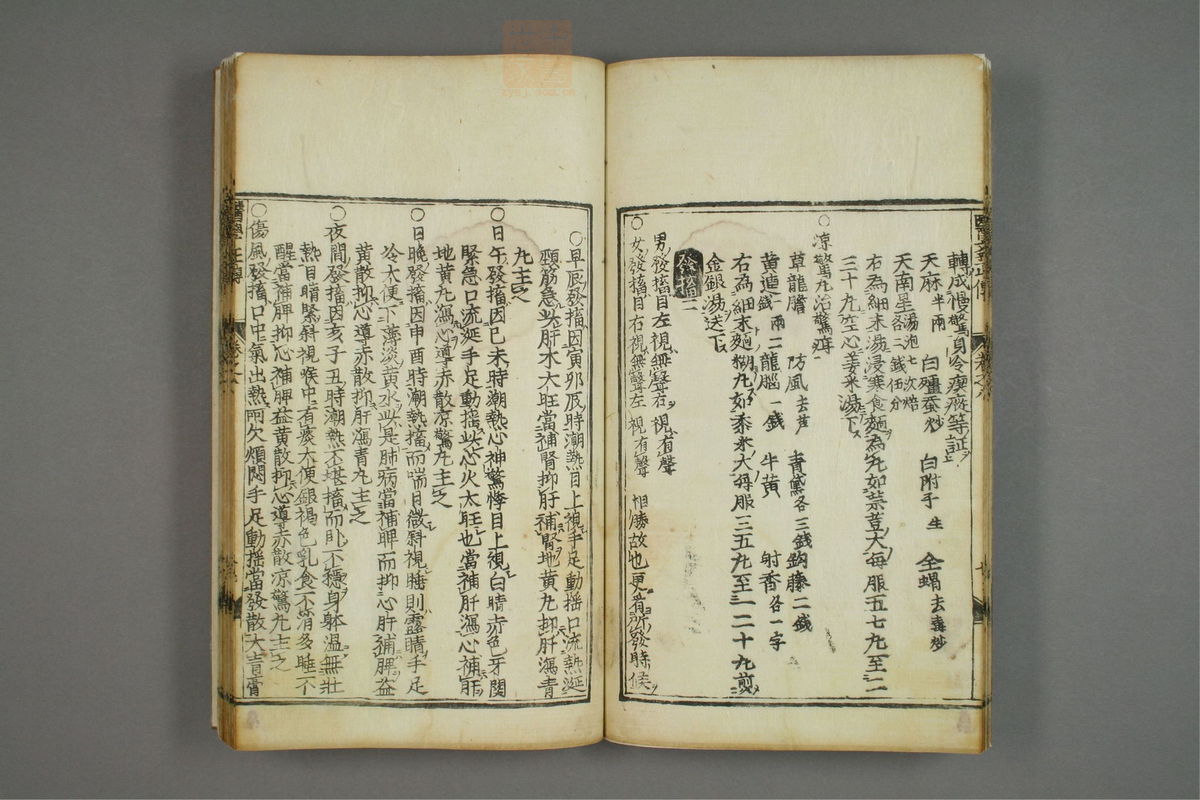 轉成慢驚身冷瘈瘲等証
天麻半兩 白殭蚕炒 白附子生 全蝎去毒炒
天南星湯泡七次焙各二錢五分
右為細末湯浸寒食麵為丸如菉豆大每服五七丸至二
三十丸空心姜米湯下
○凉驚丸治驚疳
草龍膽 防風去芦 青黛各三錢 鈎藤二錢
黄連一兩二錢 龍腦一錢 牛黄 射香各一字
右為細末麵糊丸如黍米大每服三五丸至一二十丸煎
金銀湯送下
發搐二
○男發搐目左視無聲右視有聲
○女發搐目右視無聲左視有聲 相勝故也更有所發時候
○早辰發搐因寅卯辰時潮熱目上視手足動揺口流熱涎
頸筋急此肝木大旺當補腎抑肝補腎地黄丸抑肝瀉青
丸主之
○日午發搐因巳未時潮熱心神驚悸目上視白睛赤色牙関
緊急口流涎手足動揺此心火太旺也當補肝瀉心補肝
地黄丸瀉心導赤散凉驚丸主之
○日晚發搐因申酉時潮熱搐而喘目微斜視睡則露睛手足
冷大便下薄淡黄水此是肺病當補脾而抑心肝補脾益
黄散抑心導赤散抑肝瀉青丸主之
○夜間發搐因亥子丑時潮熱不堪搐而臥不穩身躰温無壯
熱目睛緊斜視喉中有痰大便銀褐色乳食不消多睡不
醒當補脾抑心補脾益黄散抑心導赤散凉驚丸主之
○傷風發搐口中氣出熱而欠煩悶手足動揺當發散大青膏